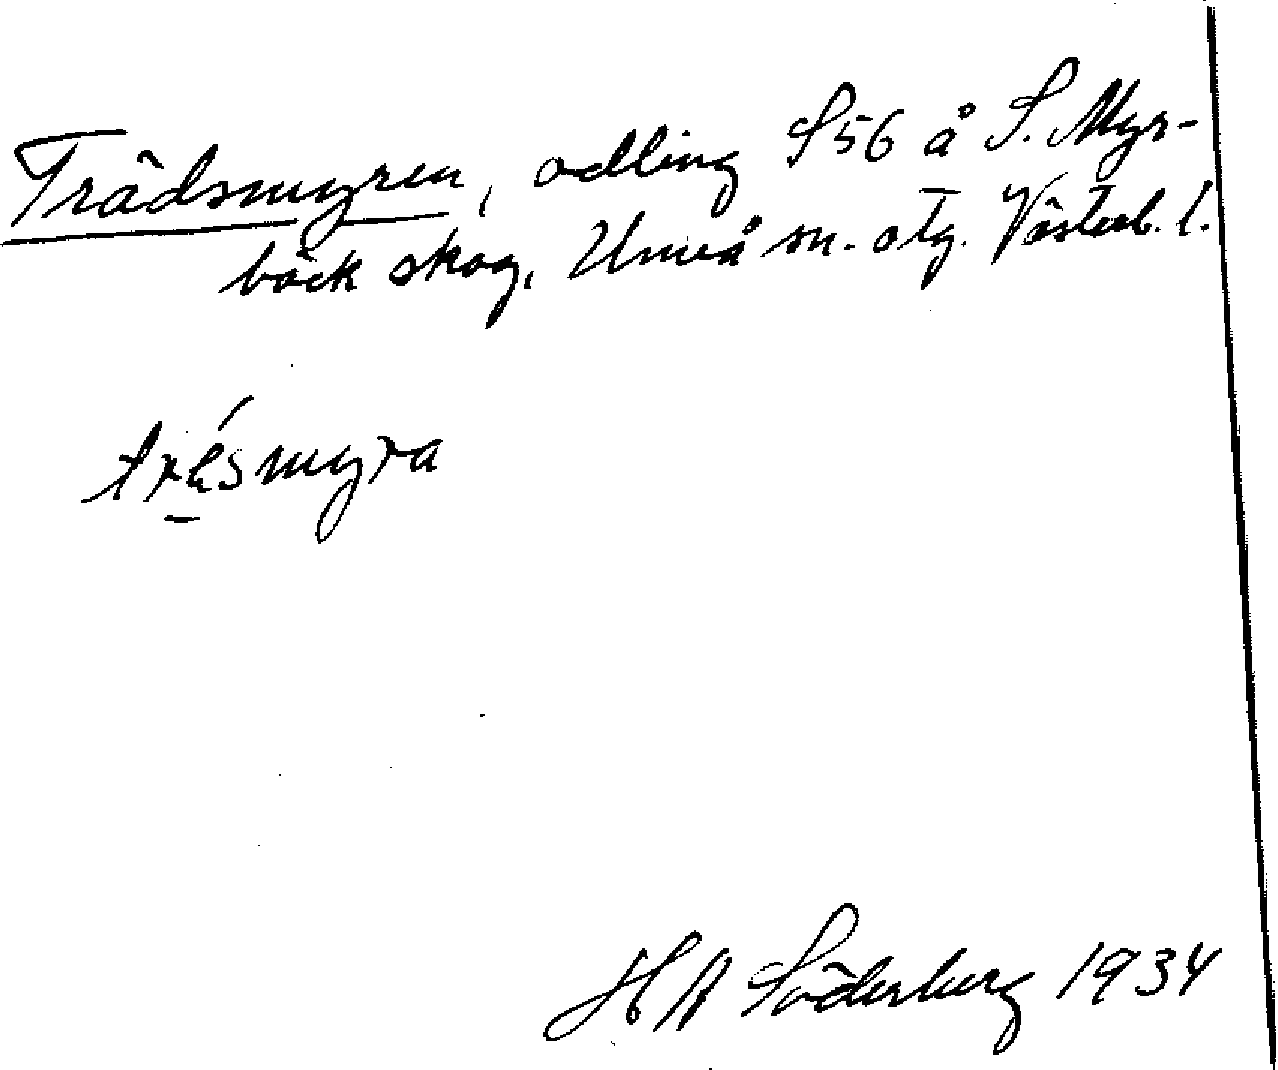 Trädsmyren, odling S56 å S. Myr-
bäck skog, Umeå sn. otg. Västerb. l.
trésmyra
H A Söderberg 1934